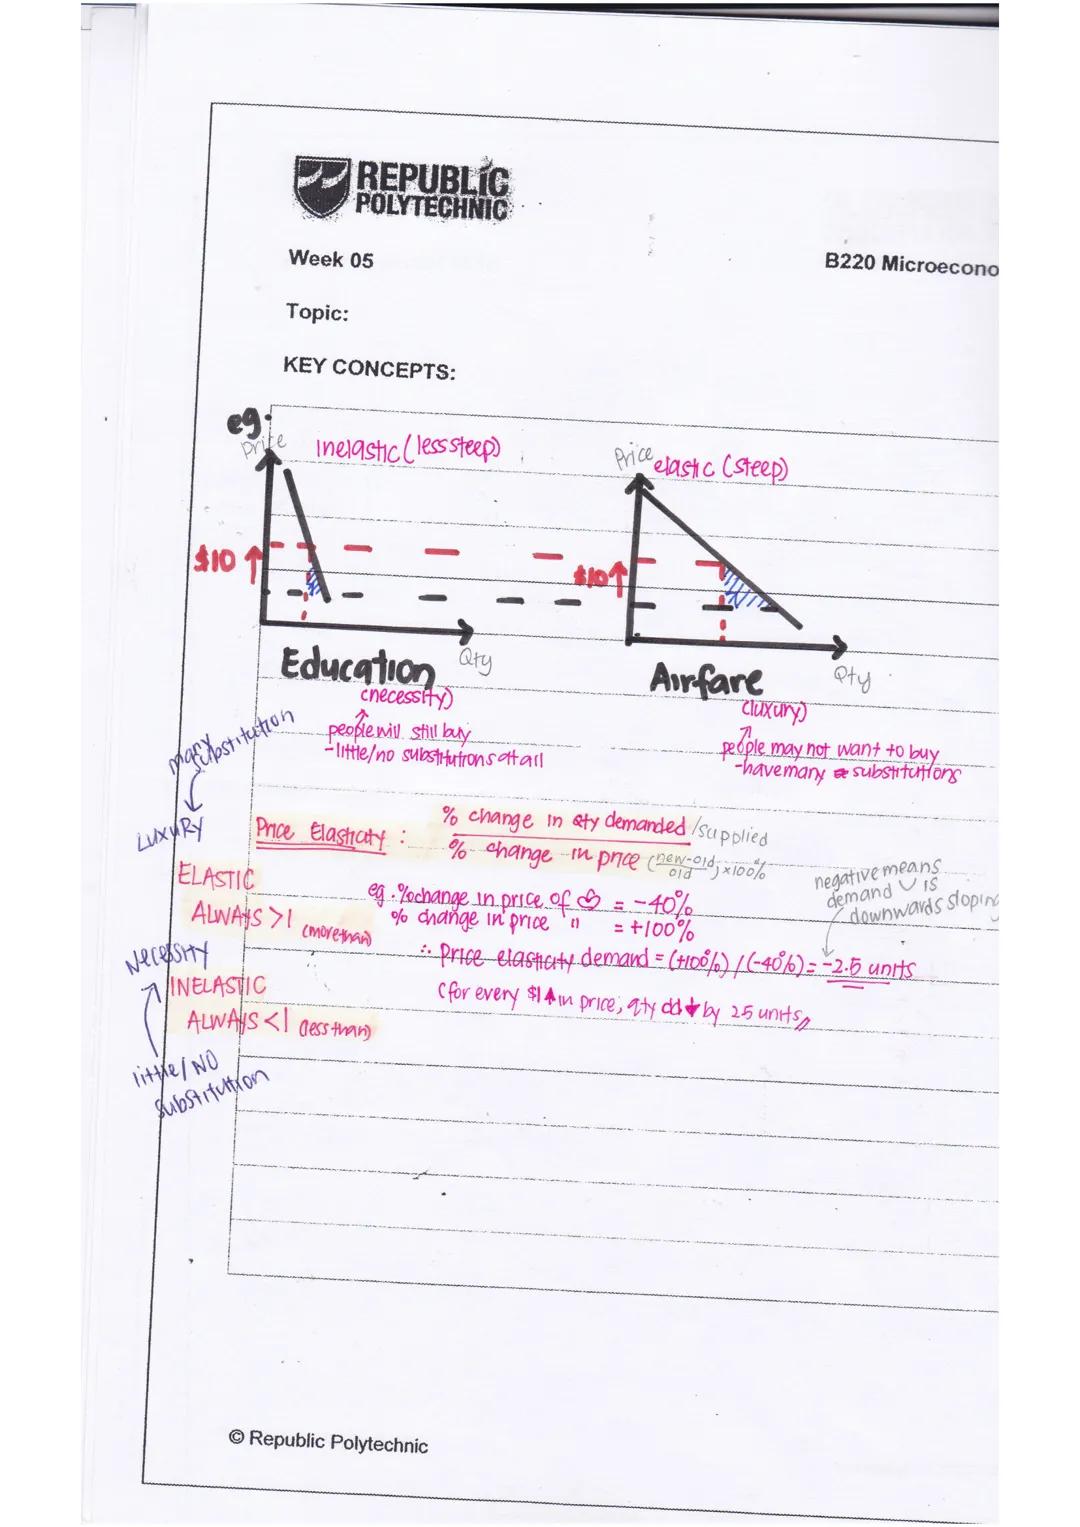 REPUBLIC
POLYTECHNIC
Week 05
B220 Microecono
Topic:
KEY CONCEPTS:
eg.
Price
inelastic (less steep)
Price
elastic (steep)
$10
$10
Qty
Qty
Education
Airfare
(necessity)
(luxury)
people will still buy
-little/no substitutions at all
people may not want to buy
-have many substitutions
many
substitution
LUXURY
Price Elasticity :
% change in Qty demanded /supplied
% change in price (new-old/old) x100%
ELASTIC
ALWAYS >1 (more than)
eg. % change in price of = -40%
% change in price " = +100%
negative means
demand is
downwards sloping
∴ Price elasticity demand = (+100%) / (-40%) = -2.5 units
(for every $1 ↑ in price, qty dd ↓ by 25 units,,
Necessity
INELASTIC
ALWAYS <1 (less than)
little/NO
substitution
© Republic Polytechnic